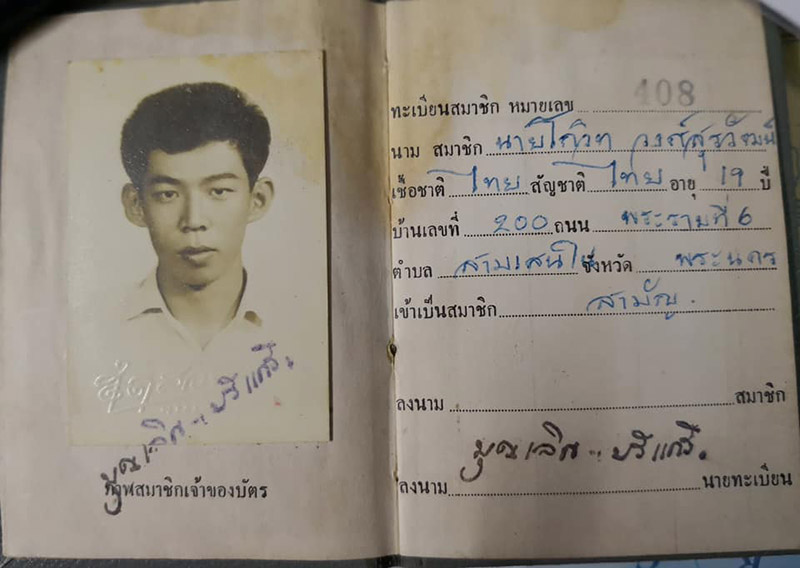 ภาพสมาชิกเจ้าของบัตร
ทะเบียนสมาชิก หมายเลข 408
นาม สมาชิก นายโกวิท วงศ์สุรวัฒน์
เชื้อชาติ ไทย สัญชาติ ไทย อายุ 19 ปี
บ้านเลขที่ 200 ถนน พระรามที่ 6
ตำบล สามเสนใน จังหวัด พระนคร
เข้าเป็นสมาชิก สามัญ
ลงนาม สมาชิก
บุญเลิศ
ลงนาม นายทะเบียน